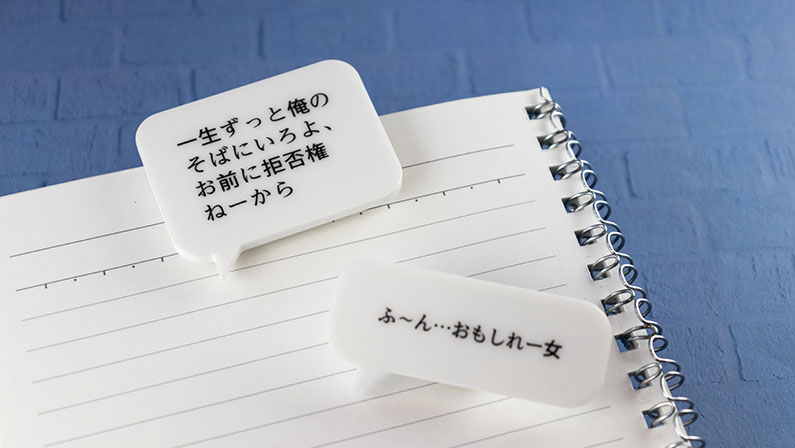 一生ずっと俺の
そばにいろよ、
お前に拒否権
ねーから
ふ〜ん…おもしれー女